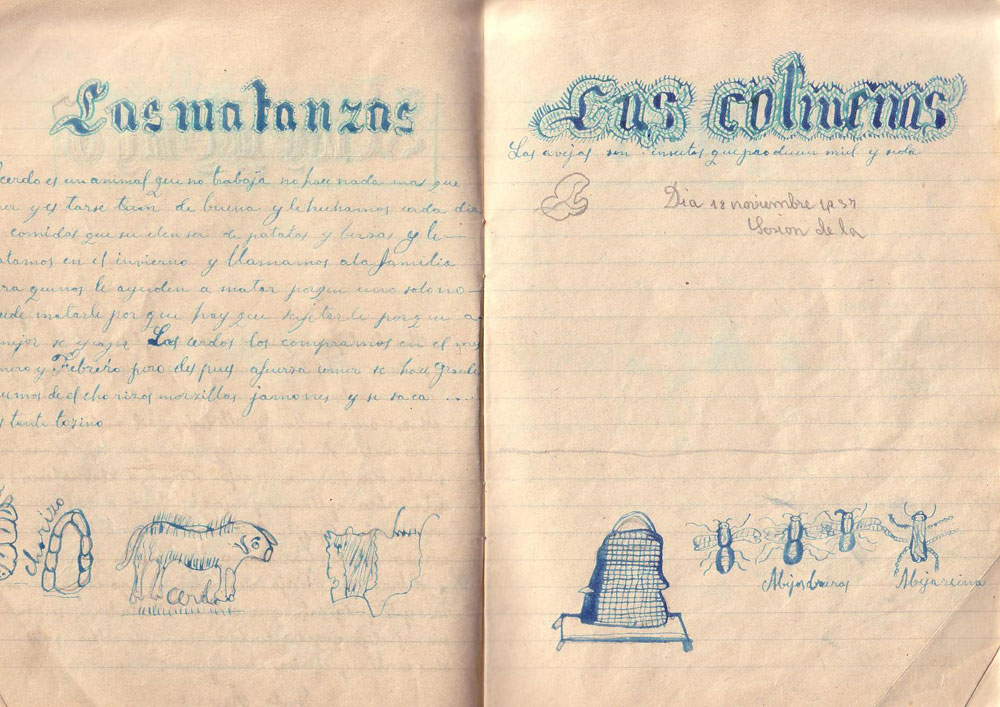 Las matanzas
cerdo es un animal que no trabaja no hace nada mas que
er y es tarse de buena y le hechamos cada dia
comidas que su elen ser de patatas y berzas y le
atamos en el invierno y llamamos a la familia
ra que nos le ayuden a matar porque uno solo no
ude matarle por que hay que sujetarle porque a
mejor se y Los cerdos los compramos en el mes
nero y Febrero pero des pues afuerza comer se hace grande
umos de el chorizos morzillas jamones y se saca
s tante tozino
chorizo
cerdo
Las colmenas
Las avejas son insectos que producen miel y
Dia 12 noviembre 1937
Lesion de la
Abeja reina